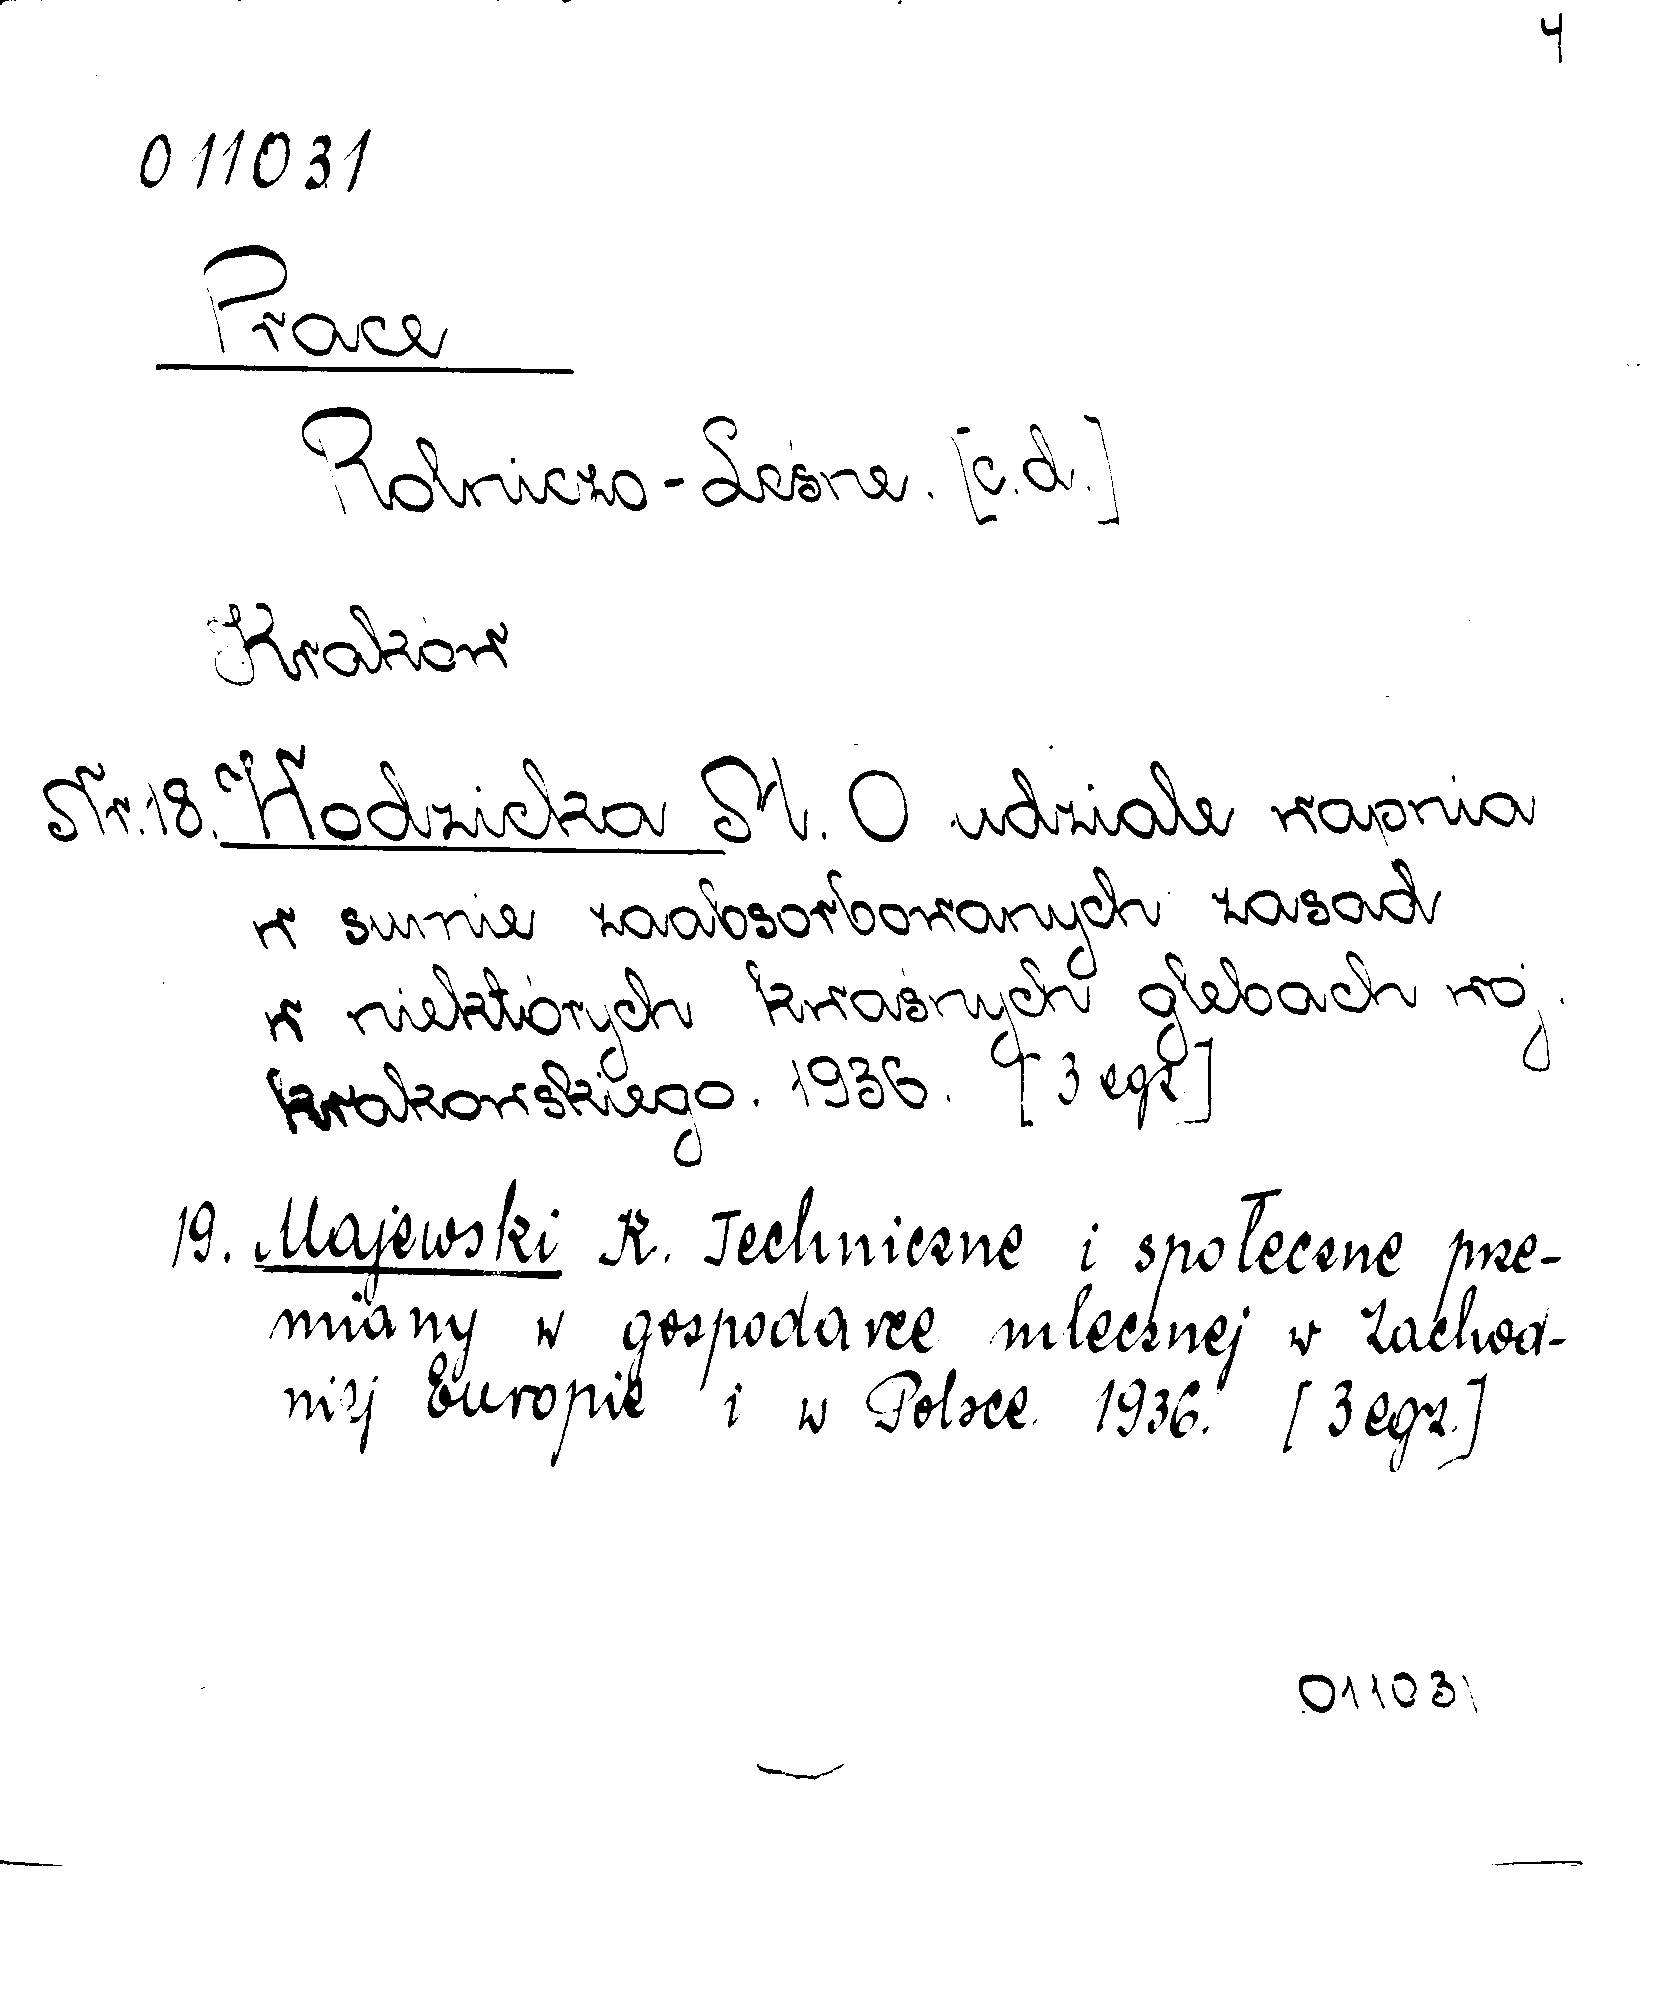 4
011031
Prace
Rolniczo-Leśne. [c.d.]
Kraków
Nr. 18. Wodzicka M. O udziale wapnia
w sumie zaabsorbowanych zasad
w niektórych kwaśnych glebach woj.
krakowskiego. 1936. [3 egz.]
19. Majewski K. Techniczne i społeczne prze-
miany w gospodarce mlecznej w Zachod-
niej Europie i w Polsce. 1936. [3 egz.]
011031